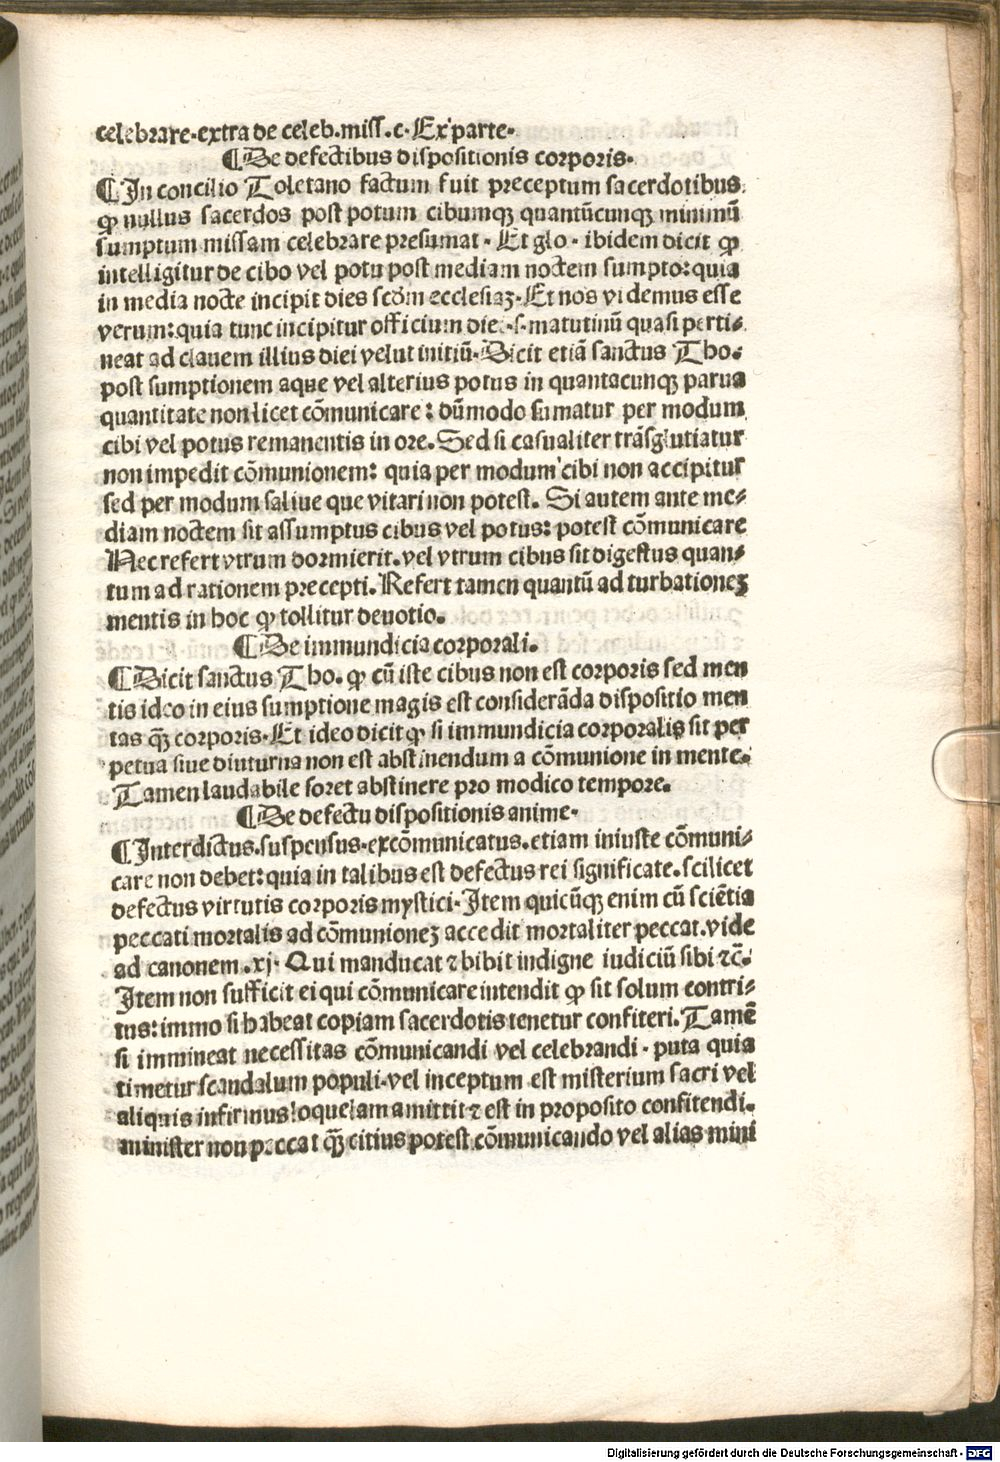 celebrare·extra de celeb.miss.c·Ex parte·
¶De defectibus dispositionis corporis·
¶In concilio Toletano factum fuit preceptum sacerdotibus
ꝙ nullus sacerdos post potum cibumqꝫ quantūcunqꝫ minimū
sumptum missam celebrare presumat·Et glo·ibidem dicit ꝙ
intelligitur de cibo vel potu post mediam noctem sumpto:quia
in media nocte incipit dies scd̄m ecclesiaꝫ·Et nos videmus esse
verum:quia tunc incipitur officium diei·s·matutinū quasi perti⸗
neat ad clauem illius diei velut initiū·Dicit etiā sanctus Tho.
post sumptionem aque vel alterius potus in quantacunqꝫ parua
quantitate non licet cōmunicare: dūmodo sumatur per modum
cibi vel potus remanentis in ore.Sed si casualiter trāsglutiatur
non impedit cōmunionem: quia per modum cibi non accipitur
sed per modum saliue que vitari non potest. Si autem ante me⸗
diam noctem sit assumptus cibus vel potus: potest cōmunicare
Nec refert vtrum dormierit.vel vtrum cibus sit digestus quan⸗
tum ad rationem precepti.Refert tamen quantū ad turbationeꝫ
mentis in hoc ꝙ tollitur deuotio.
¶De immundicia corporali.
¶Dicit sanctus Tho.ꝙ cū iste cibus non est corporis sed men
tis ideo in eius sumptione magis est considerāda dispositio men
tas qꝫ̄ corporis·Et ideo dicit ꝙ si immundicia corporalis sit per
petua siue diuturna non est abstinendum a cōmunione in mente.
Tamen laudabile foret abstinere pro modico tempore.
¶De defectu dispositionis anime·
¶Interdictus.suspensus·excōmunicatus.etiam iniuste cōmuni⸗
care non debet:quia in talibus est defectus rei significate.scilicet
defectus virtutis corporis mystici·Item quicūqꝫ enim cū sciētia
peccati mortalis ad cōmunioneꝫ accedit mortaliter peccat.vide
ad canonem.xj·Qui manducat ⁊ bibit indigne iudiciū sibi ⁊c̄.
Item non sufficit ei qui cōmunicare intendit ꝙ sit solum contri⸗
tus:immo si habeat copiam sacerdotis tenetur confiteri.Tamē
si immineat necessitas cōmunicandi vel celebrandi·puta quia
timetur scandalum populi·vel inceptum est misterium sacri vel
aliquis infirmus loquelam amittit ⁊ est in proposito confitendi.
minister non peccat qꝫ̄ citius potest cōmunicando vel alias mini
Digitalisierung gefördert durch die Deutsche Forschungsgemeinschaft - DFG